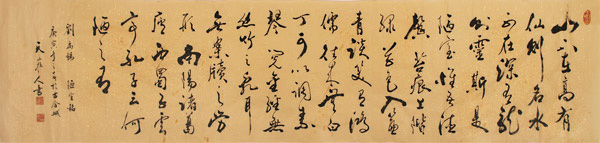 山不在高有
仙則名水
不在深有龍
則靈斯是
陋室惟吾德
馨苔痕上階
綠草色入簾
青談笑有鴻
儒往來無白
丁可以調素
琴閱金經無
絲竹之亂耳
無案牘之勞
形南陽諸葛
廬西蜀子雲
亭孔子云何
陋之有
劉禹錫 陋室銘
庚寅年於古金城
天人書